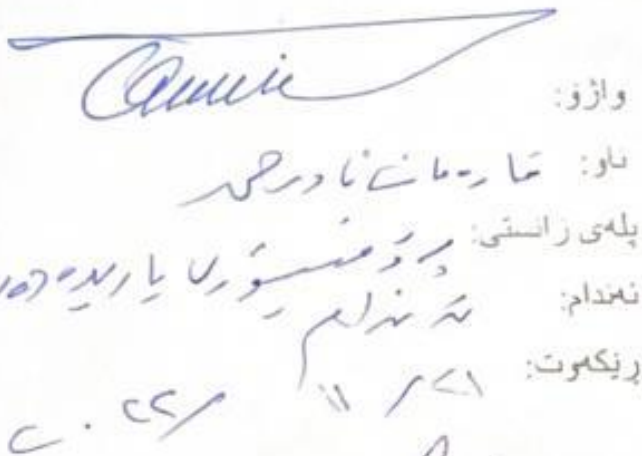 واژۆ:
ناو: قارەمان نادر
پلەی زانستی: پرۆفیسۆری یاریدەدەر
ئەندام: ئەندام
ڕێکەوت: ٢١ / ١١ / ٢٠٢٢